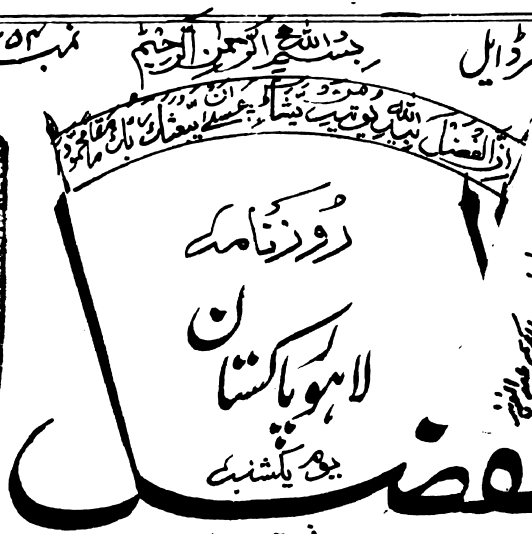 رڈ ایل بسم اللہ الرحمن الرحیم نمبر ۲۵۴
ان الفضل بید اللہ یوتیہ من یشاء عسی ان یبعثک ربک مقاما محمودا
روزنامہ
لاہور پاکستان
یوم یکشنبہ
لفضل